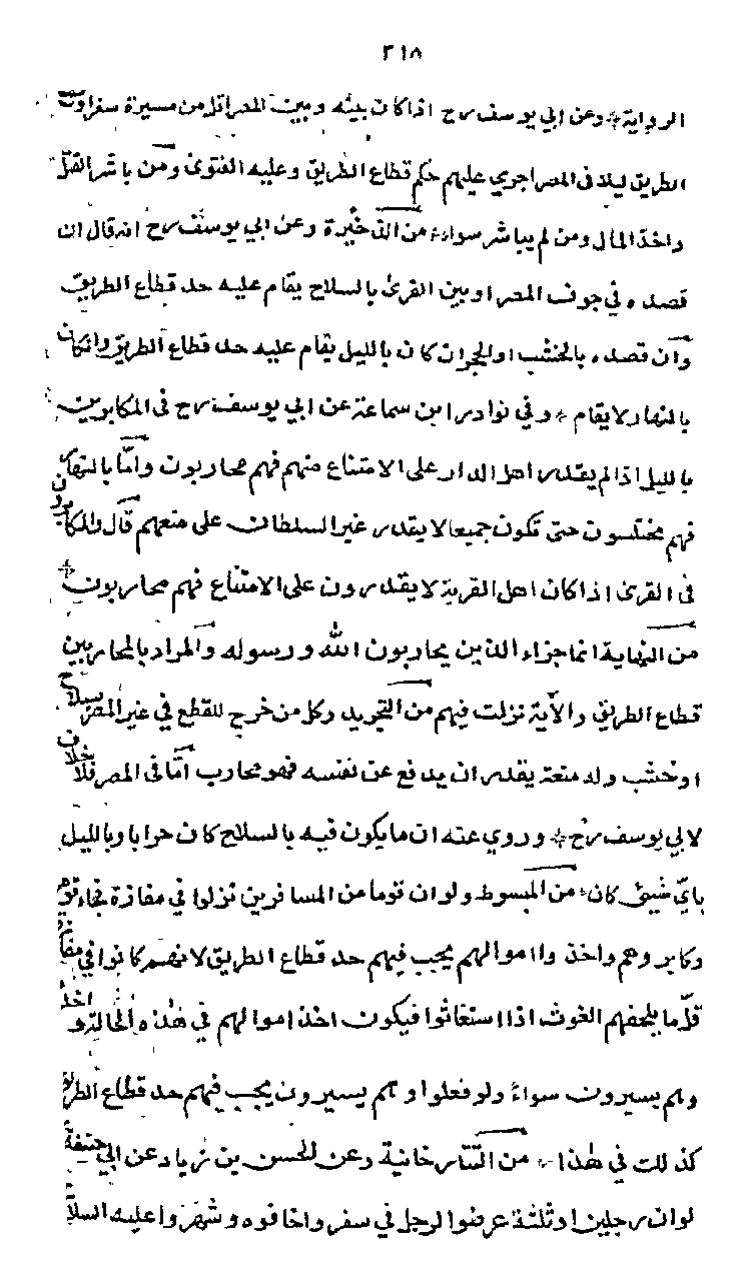 ٣١٨
الرواية * وعن ابي يوسف رح اذا كان بينه وبين المصر اقل من مسيرة سفر او
الطريق ليلا في المصر اجري عليهم حكم قطاع الطريق وعليه الفتوى ومن باشر القتل
واخذ المال ومن لم يباشر سواء * من الذخيرة وعن ابي يوسف رح انه قال ان
قصده في جوف المصر او بين القرى بالسلاح يقام عليه حد قطاع الطريق
وان قصده بالخشب او الحجر ان كان بالليل يقام عليه حد قطاع الطريق وان كان
بالنهار لا يقام * وفي نوادر ابن سماعة عن ابي يوسف رح في المكابرين
بالليل اذا لم يقدر اهل الدار على الامتناع منهم فهم محاربون واما بالنهار
فهم مختلسون حتى تكون جميعا لا يقدر غير السلطان على منعهم قال والمكابرون
في القرى اذا كان اهل القرية لا يقدرون على الامتناع فهم محاربون *
من النهاية انما جزاء الذين يحاربون الله ورسوله والمراد بالمحاربين
قطاع الطريق والآية نزلت فيهم من التجريد وكل من خرج للقطع في غير المصر بسلاح
او خشب وله منعة يقدر ان يدفع عن نفسه فهو محارب امّا في المصر فلا خلاف
لابي يوسف رح * وروي عنه ان ما يكون فيه بالسلاح كان حرابا وبالليل
بايّ شيئ كان * من المبسوط ولو ان قوما من المسافرين نزلوا في مفازة فجاء قوم
وكابروهم واخذوا اموالهم يجب فيهم حد قطاع الطريق لانهم كانوا في مفازة
قلّ ما يلحقهم الغوث اذا استغاثوا فيكون اخذ اموالهم في هذه الحالة و اخذ
وهم يسيرون سواءً ولو فعلوا وهم يسيرون يجب فيهم حد قطاع الطريق
كذلك في هذا * من التتارخانية وعن الحسن بن زياد عن ابي حنيفة
لو ان رجلين او ثلثة عرضوا لرجل في سفر واخافوه وشهروا عليه السلاح